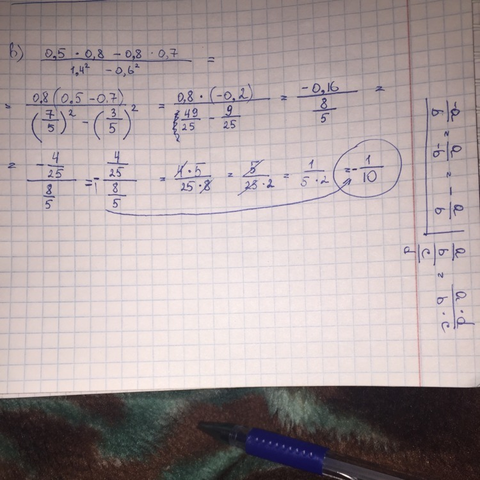 в) (0,5 · 0,8 − 0,8 · 0,7)/(1,4² − 0,6²) =
= 0,8(0,5 − 0,7)/((7/5)² − (3/5)²) = 0,8 · (−0,2)/(49/25 − 9/25) = −0,16/(8/5) =
= (−4/25)/(8/5) = −(4/25)/(8/5) = 4·5/(25·8) = 5/(25·2) = 1/(5·2) = −1/10
−a/b = a/−b = −a/b
a/(b/c)/d = a·d/(b·c)